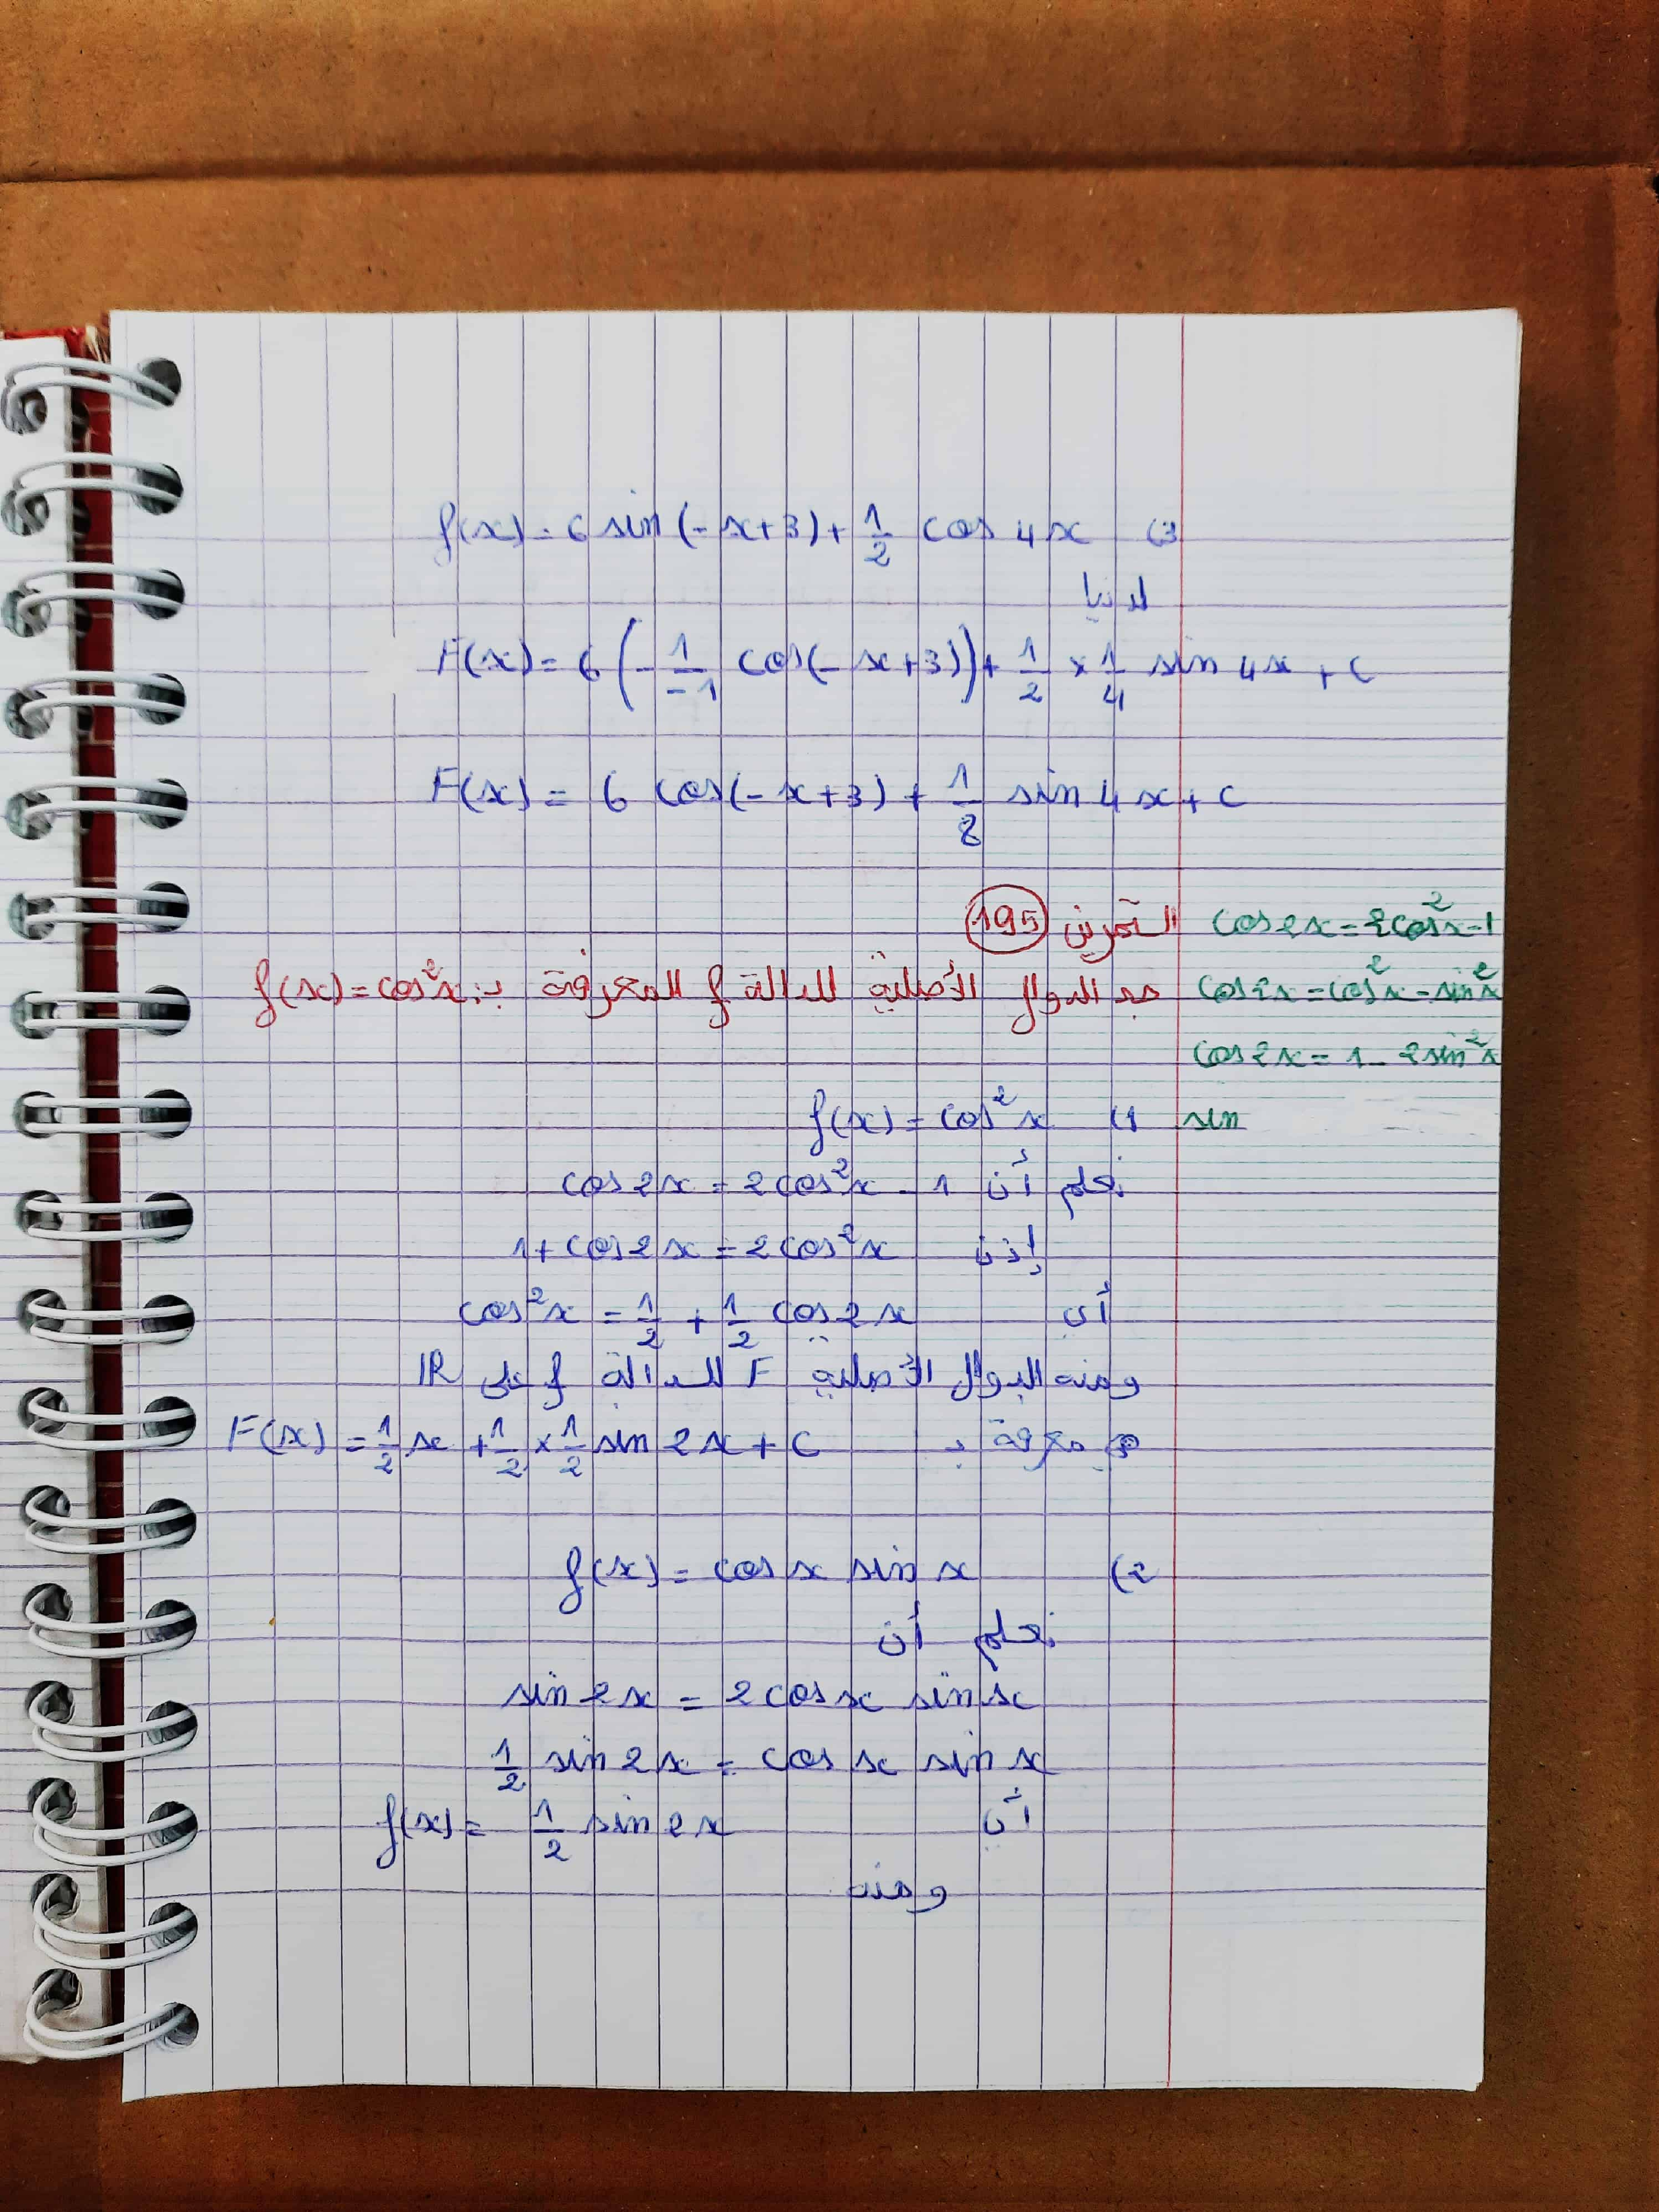 f(x) = 6 sin(-x+3) + 1/2 cos 4x (3
لدينا
F(x) = 6 (-1/-1 cos(-x+3)) + 1/2 × 1/4 sin 4x + c
F(x) = 6 cos(-x+3) + 1/8 sin 4x + c
التمرين 195
cos 2x = 2cos²x - 1
جد الدوال الأصلية للدالة f المعرفة بـ: f(x) = cos²x
cos 2x = cos²x - sin²x
cos 2x = 1 - 2sin²x
f(x) = cos²x (1
sin
نعلم أن cos 2x = 2cos²x - 1
إذن 1 + cos 2x = 2cos²x
أي cos²x = 1/2 + 1/2 cos 2x
ومنه الدوال الأصلية F للدالة f على IR
معرفة بـ F(x) = 1/2 x + 1/2 × 1/2 sin 2x + c
f(x) = cos x sin x (2
نعلم أن
sin 2x = 2 cos x sin x
1/2 sin 2x = cos x sin x
أي f(x) = 1/2 sin 2x
ومنه